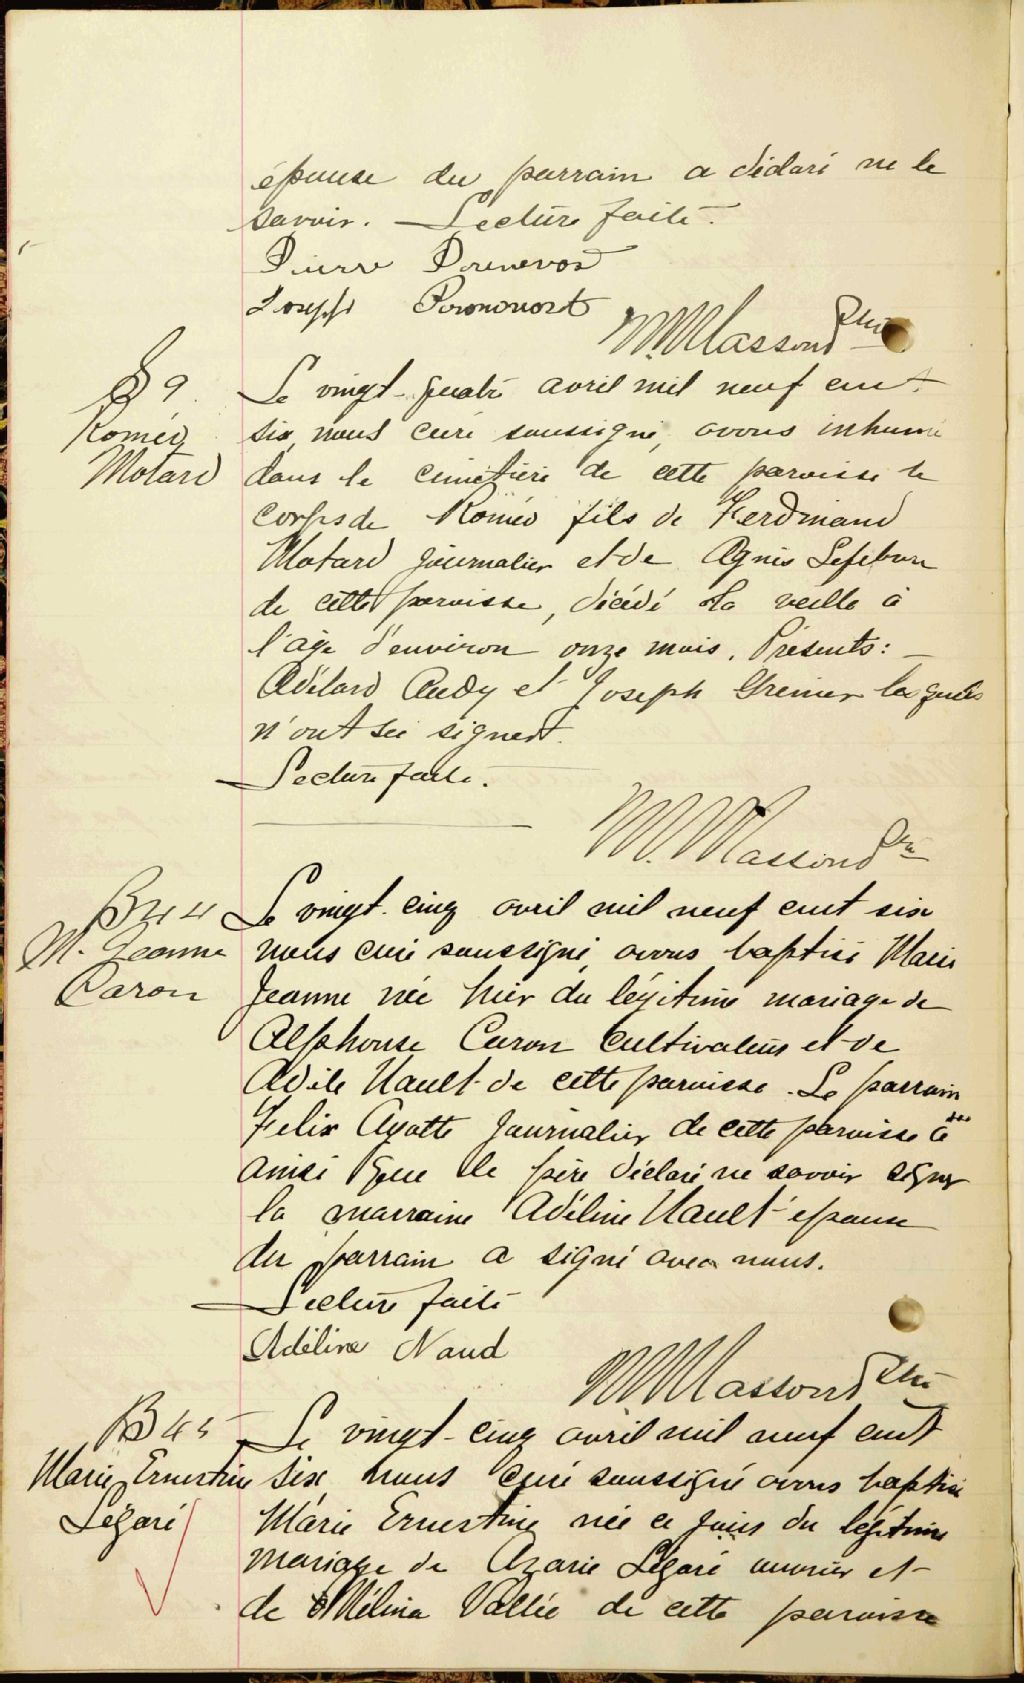 épouse du parrain a déclaré ne le
savoir. — Lecture faite.
Pierre
Joseph
M. Massond Ptre
S 9
Roméo
Motard
Le vingt-quatre avril mil neuf cent
six, nous curé soussigné, avons inhumé
dans le cimetière de cette paroisse le
corps de Roméo fils de Ferdinand
Motard journalier et de Agnès Lefebvre
de cette paroisse, décédé la veille à
l'âge d'environ onze mois. Présents: —
Adélard Audy et Joseph Grenier lesquels
n'ont su signer.
— Lecture faite.
M. Massond Ptre
B 44
M. Jeanne
Caron
Le vingt-cinq avril mil neuf cent six
nous curé soussigné avons baptisé Marie
Jeanne née hier du légitime mariage de
Alphonse Caron cultivateur et de
Adèle Nault de cette paroisse. Le parrain
Felix Ayotte journalier de cette paroisse a
ainsi que le père déclaré ne savoir signer
la marraine Adéline Nault épouse
du parrain a signé avec nous.
— Lecture faite
Adéline Naud
M. Massond Ptre
B 45
Marie Ernestine
Légaré
Le vingt-cinq avril mil neuf cent
six, nous curé soussigné avons baptisé
Marie Ernestine née ce jour du légitime
mariage de Azarie Légaré ouvrier et
de Mélina Vallée de cette paroisse